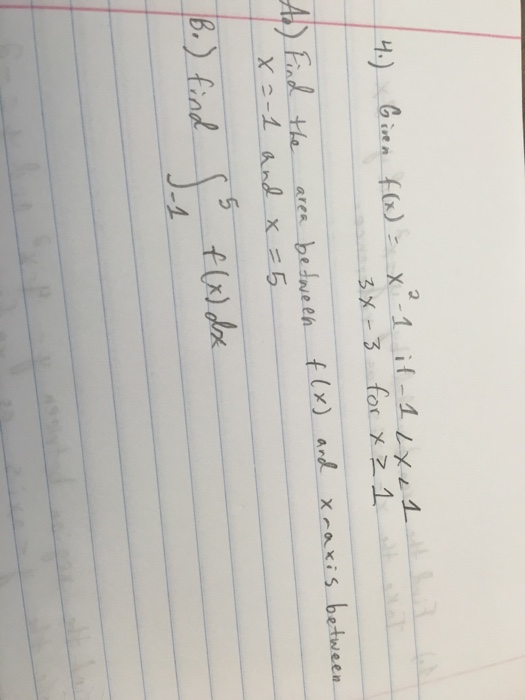 4.) Given f(x) = x² - 1 if -1 < x < 1
3x - 3 for x ≥ 1
A.) Find the area between f(x) and x-axis between
x = -1 and x = 5
B.) find ∫₋₁⁵ f(x) dx